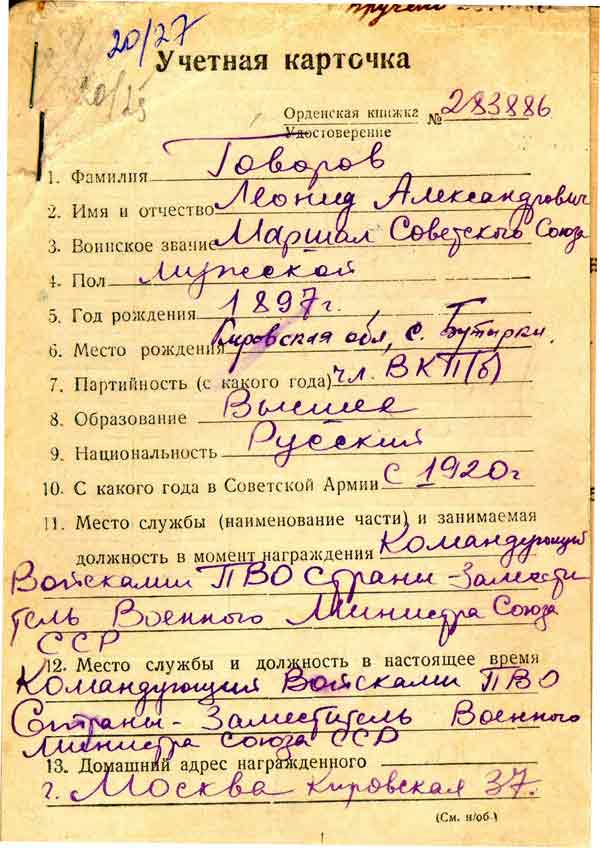 20/27
20/25
Учетная карточка
Орденская книжка
Удостоверение № 283886
1. Фамилия Говоров
2. Имя и отчество Леонид Александрович
3. Воинское звание Маршал Советского Союза
4. Пол Мужской
5. Год рождения 1897 г.
6. Место рождения Кировская обл, с. Бутырки.
7. Партийность (с какого года) чл. ВКП(б)
8. Образование Высшее
9. Национальность Русский
10. С какого года в Советской Армии с 1920 г
11. Место службы (наименование части) и занимаемая
должность в момент награждения Командующий
Войсками ПВО Страны - Замести
тель Военного Министра Союза
ССР
12. Место службы и должность в настоящее время
Командующий Войсками ПВО
Страны - Заместитель Военного
Министра Союза ССР
13. Домашний адрес награжденного
г. Москва Кировская 37.
(См. н/об.)